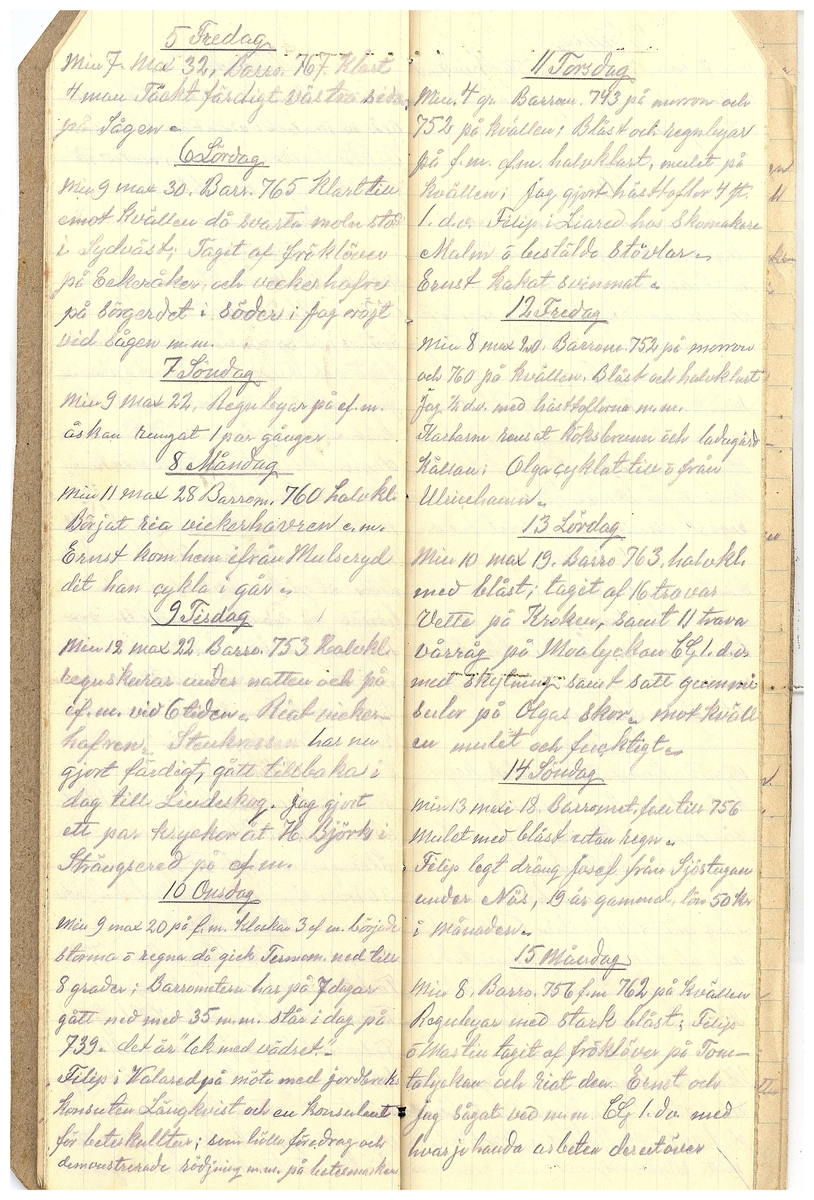 5 Fredag
Min 7. Max 32, Barro. 767. Klart
4 man Täckt färdigt västra sidan
på Sågen.
6 Lördag
Min 9 max 30. Barr. 765 Klart till
emot kvällen då svarta moln stod
i Sydväst; Taget af fröklöver
på Eekeråker, och vickerhafre
på sörgerdet i söder; Jag röjt
vid sågen m.m.
7 Söndag
Min 9 Max 22, Regnbyar på ef.m.
åskan rungat 1 par gånger
8 Måndag
Min 11 max 28 Barrom. 760 halvkl.
Börjat ria vickerhavren e.m.
Ernst kom hem ifrån Mulseryd
dit han cykla i går.
9 Tisdag
Min 12 max 22. Barro. 753 Halvkl.
regnskurar under natten och på
ef.m. vid 6 tiden. Riat vicker-
hafren. har nu
gjort färdigt, gått tillbaka i
dag till Lindeskog. Jag gjort
ett par kryckor åt H. Björk i
Strängsered på ef.m.
10 Onsdag
Min 9 max 20 på f.m. Klockan 3 ef.m. började
storma o regna då gick Termom. ned till
8 grader; Barrometern har på 7 dagar
gått ned med 35 m.m. står i dag på
739. det är "lek med vädret."
Filip i Valared på möte med jordbruks
konsulten Längkvist och en konsulent
för beteskultur; som hölls föredrag och
demonstrerade rödjning m.m. på betesmarken
11 Torsdag
Min. 4 gr. Barrom. 743 på morron och
752 på kvällen; Blåst och regnbyar
på f.m. ef.m. halvklart, mulet på
kvällen; Jag gjort hästtoflor 4 st.
1. d.v. Filip i Liared hos Skomakare
Malm o bestälde stövlar.
Ernst hakat svinmat.
12 Fredag
Min 8 max 20. Barrom. 752 på morron
och 760 på kvällen. Blåst och halvklart
Jag ½ dv. med hästtoflorna m.m.
Karlarne rensat köksbrunn och ladugård
källan; Olga cyklat till o från
Ulricehamn.
13 Lördag
Min 10 max 19. Barro 763. halvkl.
med blåst; taget af 16 travar
Vette på Kroken, samt 11 trava
vårråg på Moalyckan CG 1. d.v.
med skyltning samt satt gummi
sulor på Olgas skor. mot kväll
en mulet och fucktigt.
14 Söndag
Min 13 maxi 18. Barromet. fall till 756
Mulet med blåst utan regn.
Filip legt dräng Josef från Sjöstugan
under Näs, 19 år gammal, lön 50 Kr
i månaden.
15 Måndag
Min 8. Barro. 756 f.m 762 på kvällen
Regnbyar med stark blåst; Filip
o Martin taget af fröklöver på Tom-
talyckan och riat den. Ernst och
jag sågat ved m.m. CG 1. dv. med
hvarjehanda arbeten deretöver